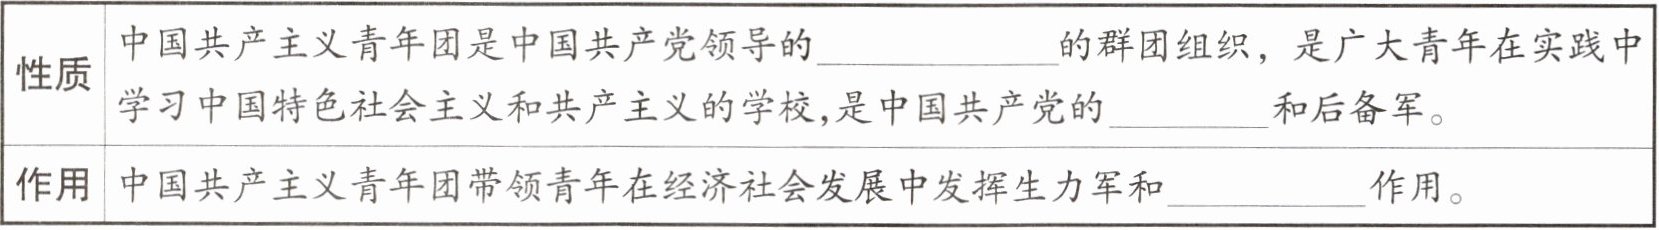 性质
中国共产主义青年团是中国共产党领导的____________的群团组织，是广大青年在实践中
学习中国特色社会主义和共产主义的学校,是中国共产党的________和后备军。
作用
中国共产主义青年团带领青年在经济社会发展中发挥生力军和__________作用。